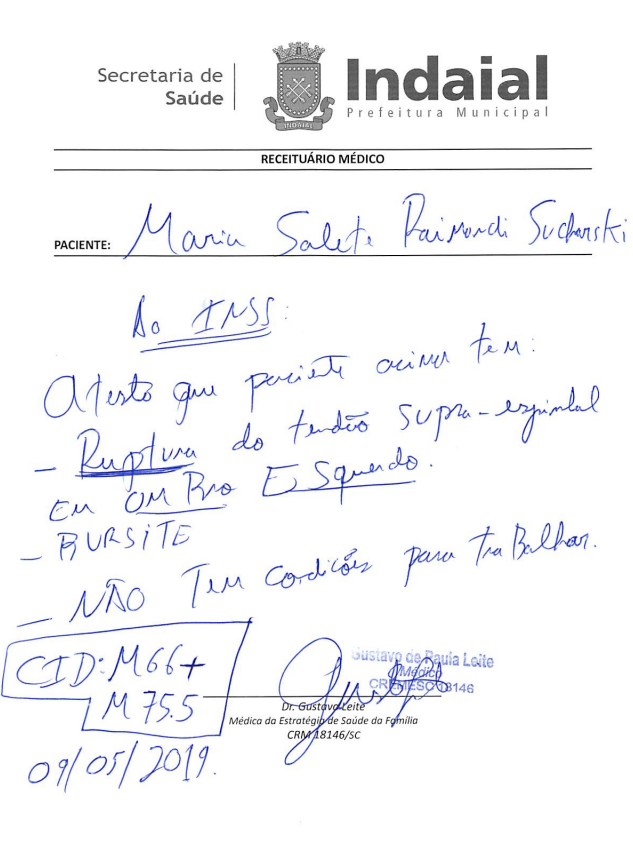 Secretaria de
Saúde
Indaial
Prefeitura Municipal
INDAIAL
RECEITUÁRIO MÉDICO
PACIENTE: Maria Salete Raimondi Sucharski
Ao INSS:
Atesto que paciente acima tem:
- Ruptura do tendão supra-espinhal
Em OMBro ESquerdo.
- BURSiTE
- NÃO Tem condições para traBalhar.
CID: M66+
M75.5
Gustavo de Paula Leite
Médico
CREMESC 18146
Dr. Gustavo Leite
Médica da Estratégia de Saúde da Família
CRM 18146/SC
09/05/2019.